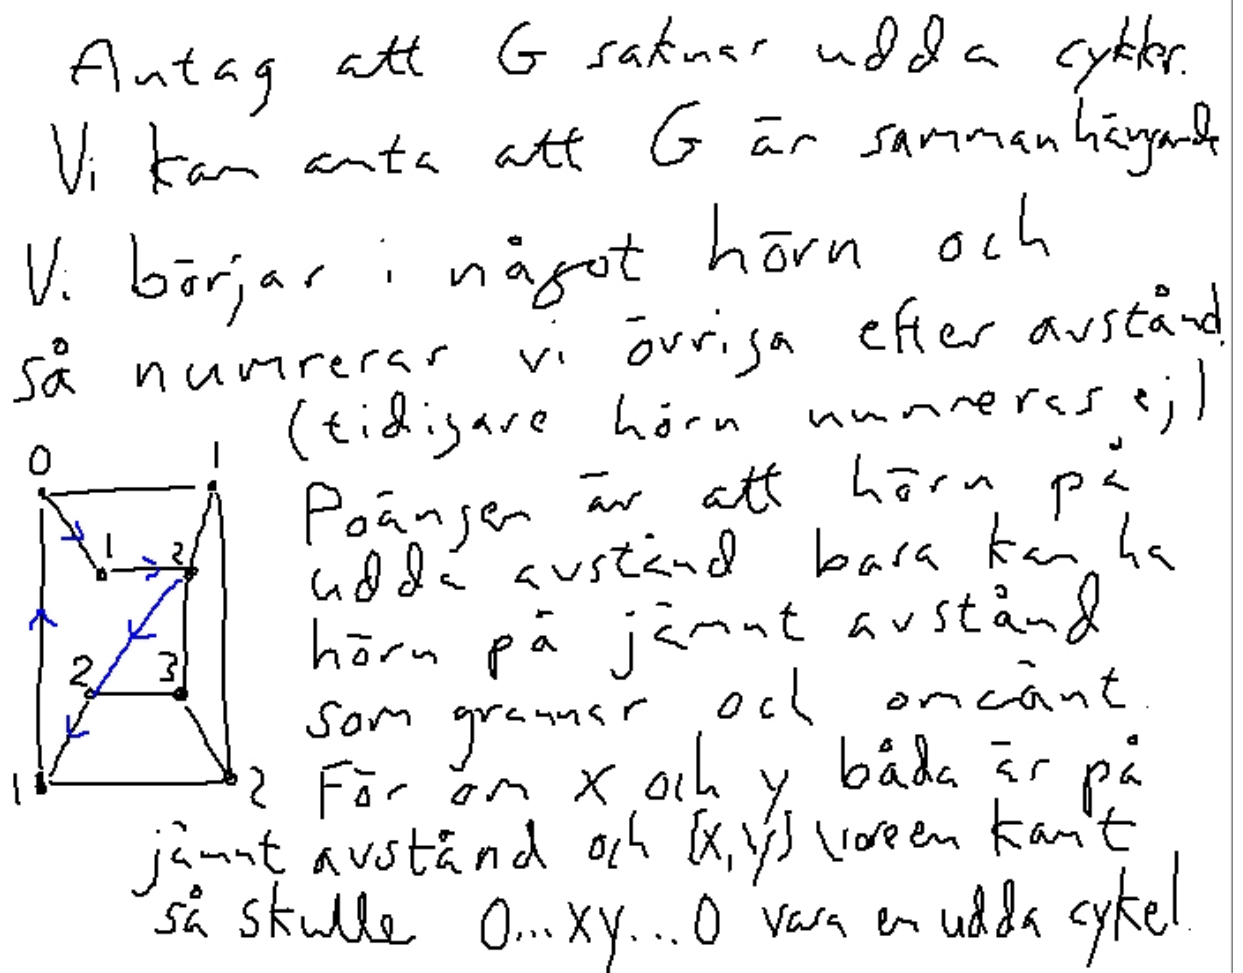 Antag att G saknar udda cykler.
Vi kan anta att G är sammanhängande
Vi börjar i något hörn och
så numrerar vi övriga efter avstånd.
(tidigare hörn numreras ej)
0 1
Poängen är att hörn på
1 2
udda avstånd bara kan ha
hörn på jämnt avstånd
2 3
som grannar och omvänt.
1 2
För om x och y båda är på
jämnt avstånd och {x,y} vore en kant
så skulle 0...xy...0 vara en udda cykel.